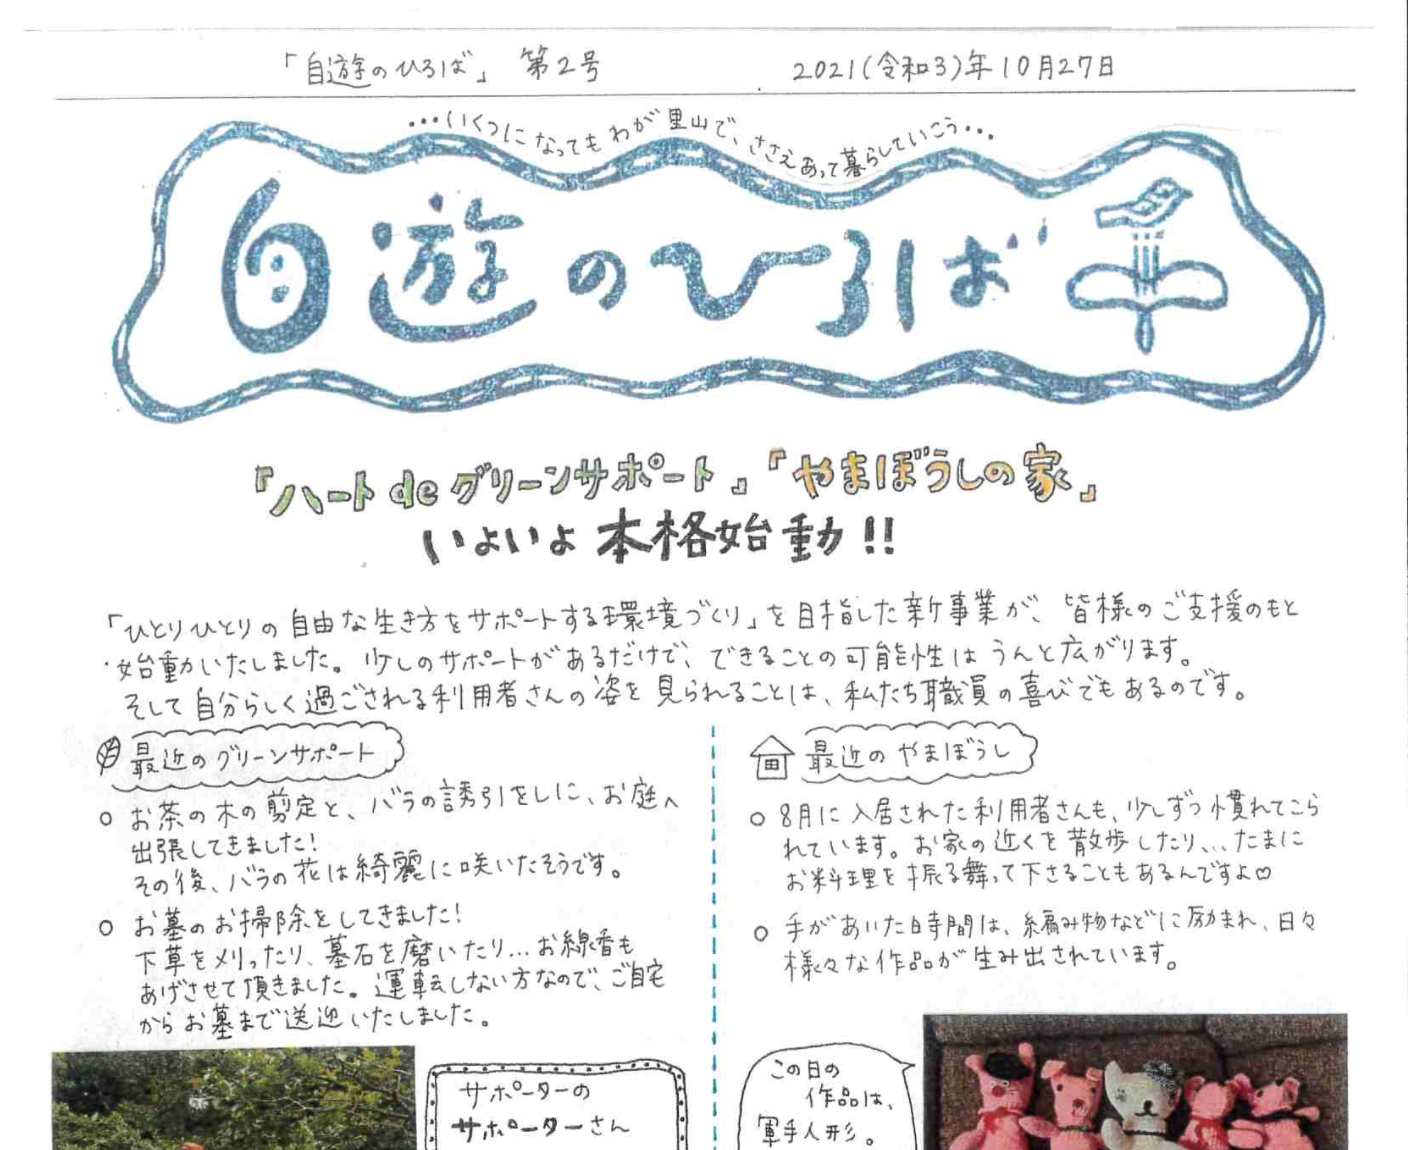 「自遊のひろば」 第2号
2021(令和3)年10月27日
…いくつになってもわが里山で、ささえあって暮らしていこう…
自遊のひろば
『ハートdeグリーンサポート』『やまぼうしの家』
いよいよ本格始動!!
「ひとりひとりの自由な生き方をサポートする環境づくり」を目指した新事業が、皆様のご支援のもと
始動いたしました。少しのサポートがあるだけで、できることの可能性はうんと広がります。
そして自分らしく過ごされる利用者さんの姿を見られることは、私たち職員の喜びでもあるのです。
最近のグリーンサポート
○ お茶の木の剪定と、バラの誘引をしに、お庭へ
出張してきました!
その後、バラの花は綺麗に咲いたそうです。
○ お墓のお掃除をしてきました!
下草を刈ったり、墓石を磨いたり…お線香も
あげさせて頂きました。運転しない方なので、ご自宅
からお墓まで送迎いたしました。
サポーターの
サポーターさん
最近のやまぼうし
○ 8月に入居された利用者さんも、少しずつ慣れてこら
れています。お家の近くを散歩したり、…たまに
お料理を振る舞って下さることもあるんですよ♡
○ 手があいた時間は、編み物などに励まれ、日々
様々な作品が生み出されています。
この日の
作品は、
軍手人形。